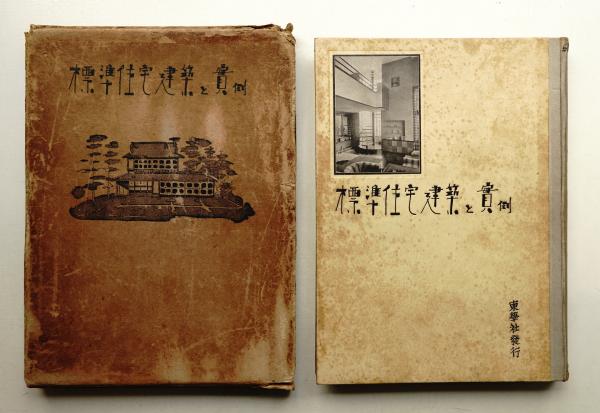 標準住宅建築と實例
標準住宅建築と實例
東學社發行